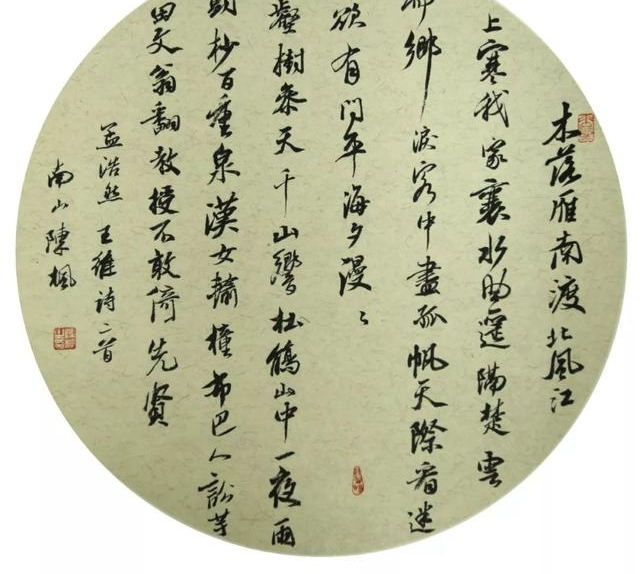 木落雁南渡北風江
上寒我家襄水曲遥隔楚雲
鄉淚客中盡孤帆天際看迷
欲有問平海夕漫〻
壑樹參天千山響杜鵑山中一夜雨
杪百重泉漢女輸橦布巴人訟芋
田文翁翻教授不敢倚先賢
孟浩然王維诗二首
南山陳楓